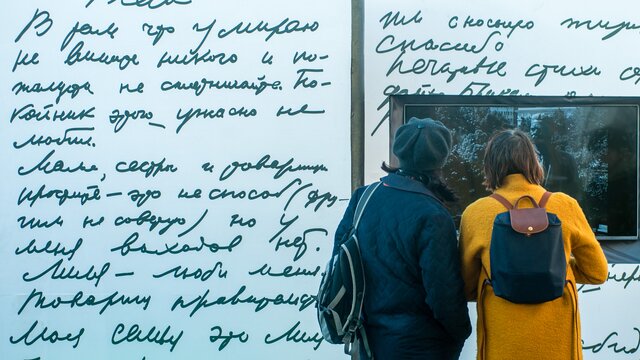 В том что умираю
не вините никого и по-
жалуйста не сплетничайте. По-
койник этого ужасно не
любил.
Мама, сестры и товарищи
простите – это не способ (дру-
гим не советую) но у
меня выходов нет.
Лиля – люби меня.
Товарищ правительство
Моя семья это Лиля
ты сносную жизн
спасибо
Начатые стихи о